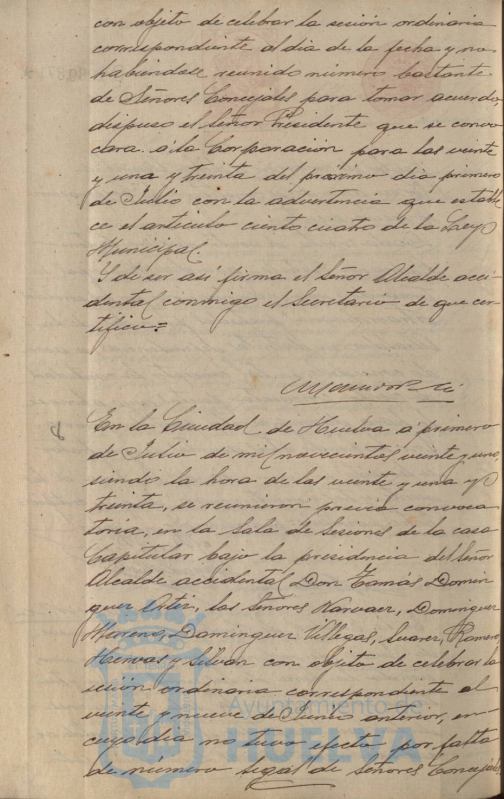 con objeto de celebrar la sesión ordinaria
correspondiente al dia de la fecha y no
habiéndose reunido número bastante
de Señores Concejales para tomar acuerdo,
dispuso el Señor Presidente que se convo
cara a la Corporación para las veinte
y una y treinta del proximo dia primero
de Julio con la advertencia que estable
ce el articulo ciento cuatro de la Ley
Municipal.
Y de ser asi firma el Señor Alcalde acci-
dental conmigo el Secretario de que cer-
tifico=
En la Ciudad de Huelva á primero
de Julio de mil novecientos veinte y uno,
siendo la hora de las veinte y una y
treinta, se reunieron previa convoca
toria, en la Sala de Sesiones de la casa
Capitular bajo la presidencia del Señor
Alcalde accidental Don Tomás Domin
guez Ortiz, los Señores Narvaez, Dominguez
Moreno, Dominguez Villegas, Suarez, Romero,
Hervas y Silvan con objeto de celebrar la
sesión ordinaria correspondiente al
veinte y nueve de Junio anterior, en
cuyo dia no tuvo efecto por falta
de número legal de Señores Concejales
Ayuntamiento de
HUELVA